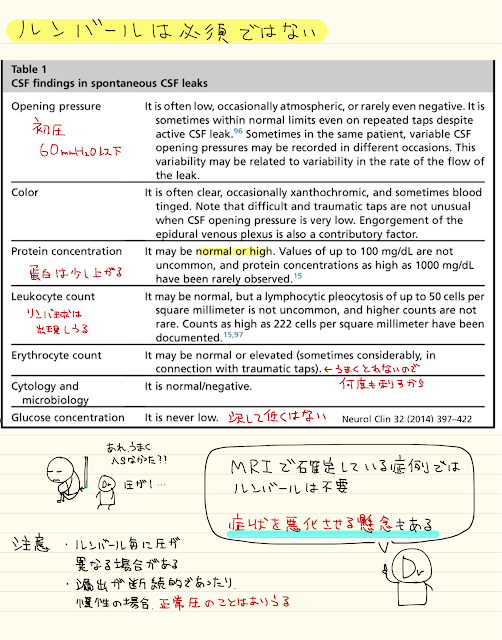 ルンバールは必須ではない
Table 1
CSF findings in spontaneous CSF leaks
Opening pressure
初圧
60mmH2O以下
It is often low, occasionally atmospheric, or rarely even negative. It is
sometimes within normal limits even on repeated taps despite
active CSF leak.96 Sometimes in the same patient, variable CSF
opening pressures may be recorded in different occasions. This
variability may be related to variability in the rate of the flow of
the leak.
Color
It is often clear, occasionally xanthochromic, and sometimes blood
tinged. Note that difficult and traumatic taps are not unusual
when CSF opening pressure is very low. Engorgement of the
epidural venous plexus is also a contributory factor.
Protein concentration
蛋白は少し上がる
It may be normal or high. Values of up to 100 mg/dL are not
uncommon, and protein concentrations as high as 1000 mg/dL
have been rarely observed.15
Leukocyte count
リンパ球は
出現しうる
It may be normal, but a lymphocytic pleocytosis of up to 50 cells per
square millimeter is not uncommon, and higher counts are not
rare. Counts as high as 222 cells per square millimeter have been
documented.15,97
Erythrocyte count
It may be normal or elevated (sometimes considerably, in
connection with traumatic taps). ←うまくとれないので
何度も刺るから
Cytology and
microbiology
It is normal/negative.
Glucose concentration
It is never low. 決して低くはない
Neurol Clin 32 (2014) 397–422
あれ、うまく
入らなかた?!
Dr
圧が!…
MRIで確定している症例では
ルンバールは不要
症状を悪化させる懸念もある
Dr
注意
・ルンバール毎に圧が
異なる場合がある
・漏出が断続的であったり、
慢性の場合、正常圧のことはありうる